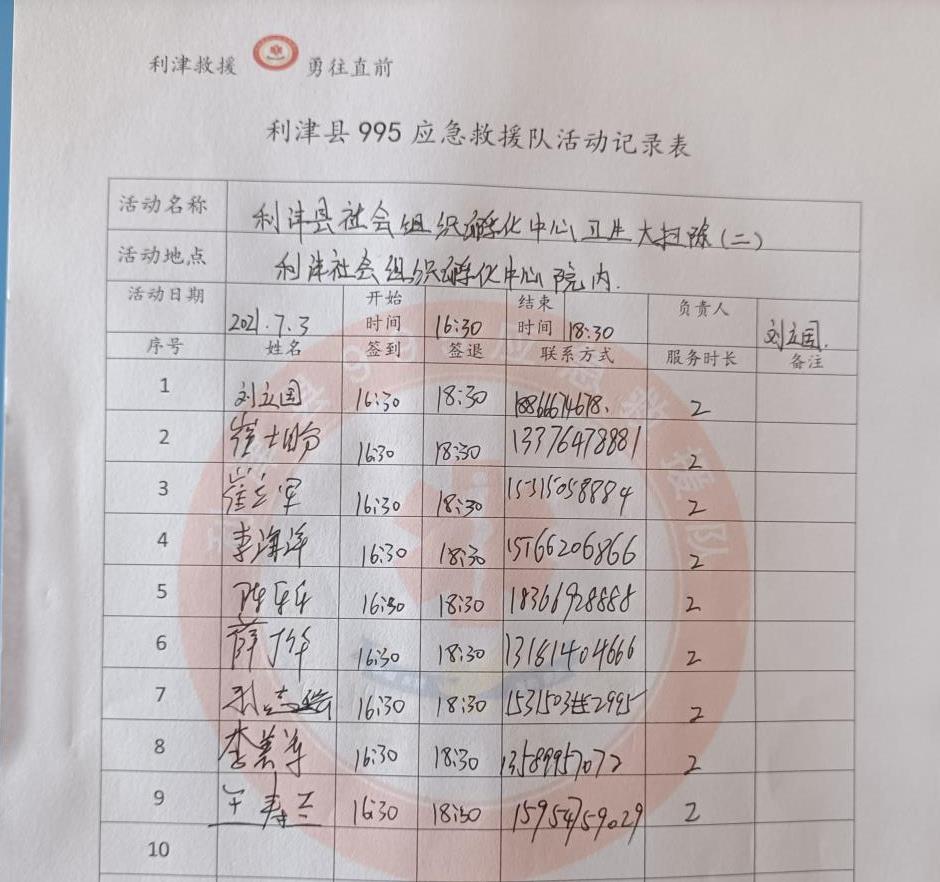 利津救援 勇往直前
利津县 995 应急救援队活动记录表
活动名称 利津县社会组织孵化中心卫生大扫除(二)
活动地点 利津社会组织孵化中心院内.
活动日期 2021.7.3 开始时间 16:30 结束时间 18:30 负责人 刘立国.
序号 姓名 签到 签退 联系方式 服务时长 备注
1 刘立国 16:30 18:30 18866674678. 2
2 16:30 18:30 13376478881 2
3 崔立军 16:30 18:30 15315058884 2
4 李海洋 16:30 18:30 15766206866 2
5 陈乐乐 16:30 18:30 18366928888 2
6 薛丁华 16:30 18:30 13181404666 2
7 16:30 18:30 2
8 李美华 16:30 18:30 13589957072 2
9 王寿兰 16:30 18:30 15954759029 2
10